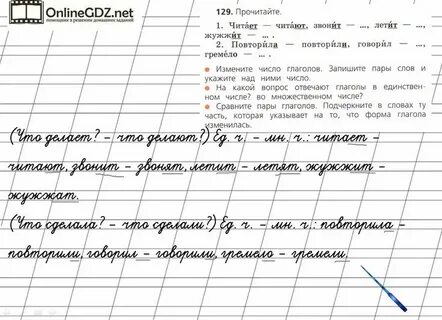 OnlineGDZ.net
помощники в решении домашних заданий
129. Прочитайте.
1. Чита́ет — чита́ют, звони́т — ..., лети́т — ...,
жужжи́т — ... .
2. Повтори́ла — повтори́ли, говори́л — ...,
греме́ло — ... .
• Измените число глаголов. Запишите пары слов и
укажите над ними число.
• На какой вопрос отвечают глаголы в единствен-
ном числе? во множественном числе?
• Сравните пары глаголов. Подчеркните в словах ту
часть, которая указывает на то, что форма глагола
изменилась.
(Что делает? - что делают?) Ед. ч. - мн. ч.: читает -
читают, звонит - звонят, летит - летят, жужжит -
жужжат.
(Что сделала? - что сделали?) Ед. ч. - мн. ч.: повторила -
повторили, говорил - говорили, гремело - гремели.